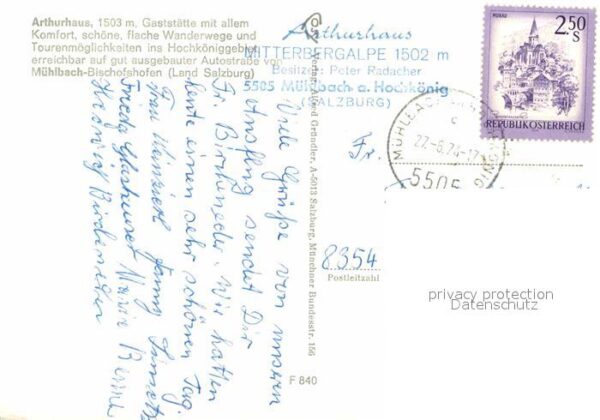 Arthurhaus, 1503 m, Gaststätte mit allem
Komfort, schöne, flache Wanderwege und
Tourenmöglichkeiten ins Hochköniggebiet
erreichbar auf gut ausgebauter Autostraße von
Mühlbach-Bischofshofen (Land Salzburg)
Arthurhaus
MITTERBERGALPE 1502 m
Besitzer: Peter Radacher
5505 Mühlbach a. Hochkönig
(SALZBURG)
MURAU
2.50
S
REPUBLIK ÖSTERREICH
MÜHLBACH
22.-6.74-17
c
5505
Viele Grüße von unserem
Ausflug sendet Dir
Fr. Wir hatten
heute einen sehr schönen Tag.
Frau Fanny
Frieda Maria
Verlag: Alfred Gründler, A-5013 Salzburg, Münchner Bundesstr. 156
Fr.
8354
Postleitzahl
F 840
privacy protection
Datenschutz